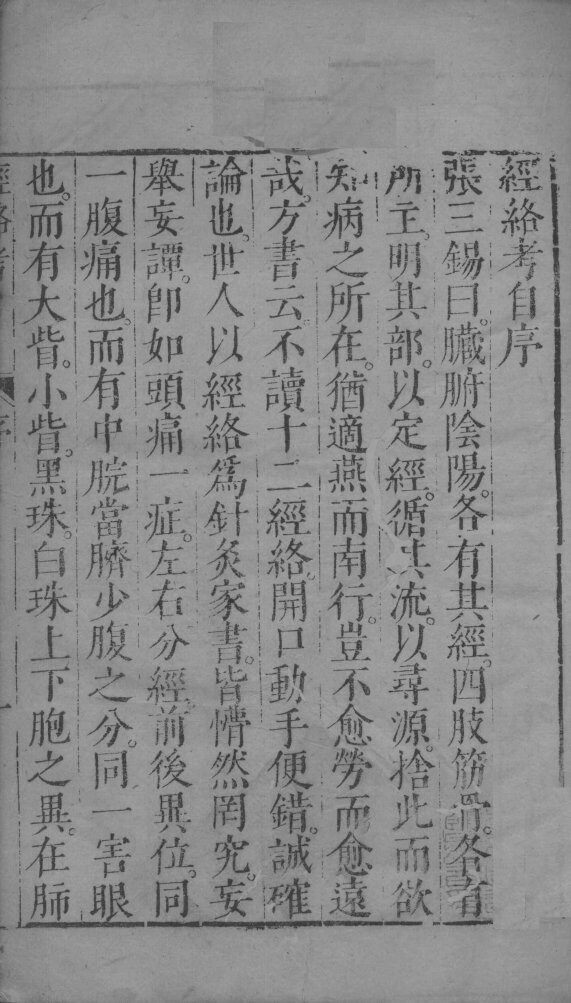 經絡考自序
張三錫曰。臟腑陰陽。各有其經。四肢筋骨。各有
所主。明其部。以定經。循其流。以尋源。捨此而欲
知病之所在。猶適燕而南行。豈不愈勞而愈遠
哉。方書云。不讀十二經絡。開口動手便錯。誠確
論也。世人以經絡爲針灸家書。皆懵然罔究。妄
舉妄譚。卽如頭痛一症。左右分經。前後異位。同
一腹痛也。而有中脘當臍少腹之分。同一害眼
也。而有大眥。小眥。黑珠。白珠上下胞之異。在肺
經絡考
序
一